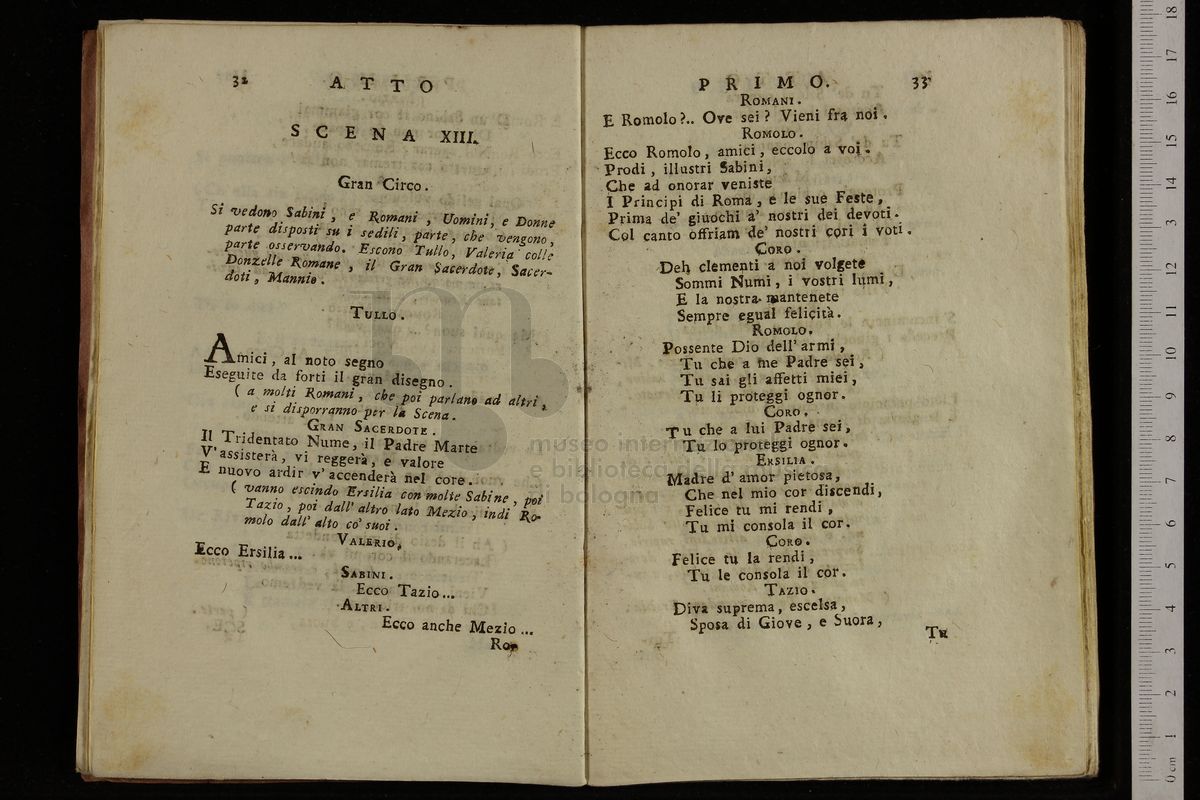 32 ATTO
SCENA XIII.
Gran Circo.
Si vedono Sabini, e Romani, Uomini, e Donne
parte disposti su i sedili, parte, che vengono,
parte osservando. Escono Tullo, Valeria colle
Donzelle Romane, il Gran Sacerdote, Sacer-
doti, Mannio.
TULLO.
Amici, al noto segno
Eseguite da forti il gran disegno.
( a molti Romani, che poi parlano ad altri,
e si disporranno per la Scena.
GRAN SACERDOTE.
Il Tridentato Nume, il Padre Marte
V'assisterà, vi reggerà, e valore
E nuovo ardir v'accenderà nel core.
( vanno escindo Ersilia con molte Sabine, poi
Tazio, poi dall' altro lato Mezio, indi Ro-
molo dall' alto co' suoi.
VALERIO,
Ecco Ersilia...
SABINI.
Ecco Tazio...
ALTRI.
Ecco anche Mezio...
Ro-
PRIMO. 33
ROMANI.
E Romolo?.. Ove sei? Vieni fra noi.
ROMOLO.
Ecco Romolo, amici, eccolo a voi.
Prodi, illustri Sabini,
Che ad onorar veniste
I Principi di Roma, e le sue Feste,
Prima de' giuochi a' nostri dei devoti.
Col canto offriam de' nostri cori i voti.
CORO.
Deh clementi a noi volgete
Sommi Numi, i vostri lumi,
E la nostra mantenete
Sempre egual felicità.
ROMOLO.
Possente Dio dell' armi,
Tu che a me Padre sei,
Tu sai gli affetti miei,
Tu li proteggi ognor.
CORO.
Tu che a lui Padre sei,
Tu lo proteggi ognor.
ERSILIA.
Madre d' amor pietosa,
Che nel mio cor discendi,
Felice tu mi rendi,
Tu mi consola il cor.
CORO.
Felice tu la rendi,
Tu le consola il cor.
TAZIO.
Diva suprema, escelsa,
Sposa di Giove, e Suora,
Tu
museo internazionale
e biblioteca della musica
di bologna
0 cm 1 2 3 4 5 6 7 8 9 10 11 12 13 14 15 16 17 18